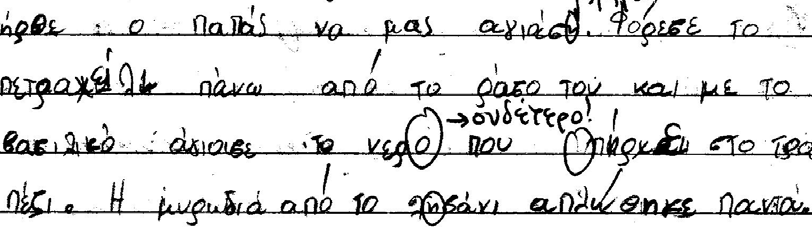 ήρθε ο παπάς να μας αγιάση. Φόρεσε το
πετραχείλι πάνω από το ράσο του και με το
→ουδέτερο!
βασιλικό άγιασε το νερό που πήρχε στο τρα
πέζι. Η μυρωδιά από το ληβάνι απλώθηκε παντά.